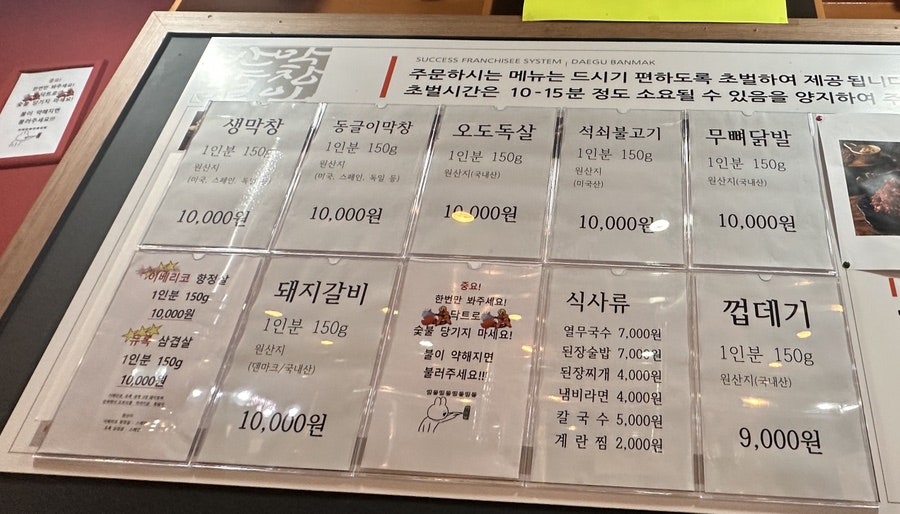 중요!
한번만 봐주세요!
닥트로
숯불 당기지 마세요!
불이 약해지면
불러주세요!!!
막창
SUCCESS FRANCHISEE SYSTEM | DAEGU BANMAK
주문하시는 메뉴는 드시기 편하도록 초벌하여 제공됩니다
초벌시간은 10-15분 정도 소요될 수 있음을 양지하여
생막창
1인분 150g
원산지
(미국, 스페인, 독일 등)
10,000원
동글이막창
1인분 150g
원산지
(미국, 스페인, 독일 등)
10,000원
오도독살
1인분 150g
원산지(국내산)
10,000원
석쇠불고기
1인분 150g
원산지
(미국산)
10,000원
무뼈닭발
1인분 150g
원산지(국내산)
10,000원
이베리코 항정살
1인분 150g
10,000원
듀록 삼겹살
1인분 150g
10,000원
원산지
돼지갈비
1인분 150g
원산지
(덴마크/국내산)
10,000원
중요!
한번만 봐주세요!
닥트로
숯불 당기지 마세요!
불이 약해지면
불러주세요!!!
식사류
열무국수 7,000원
된장술밥 7,000원
된장찌개 4,000원
냄비라면 4,000원
칼국수 5,000원
계란찜 2,000원
껍데기
1인분 150g
원산지(국내산)
9,000원